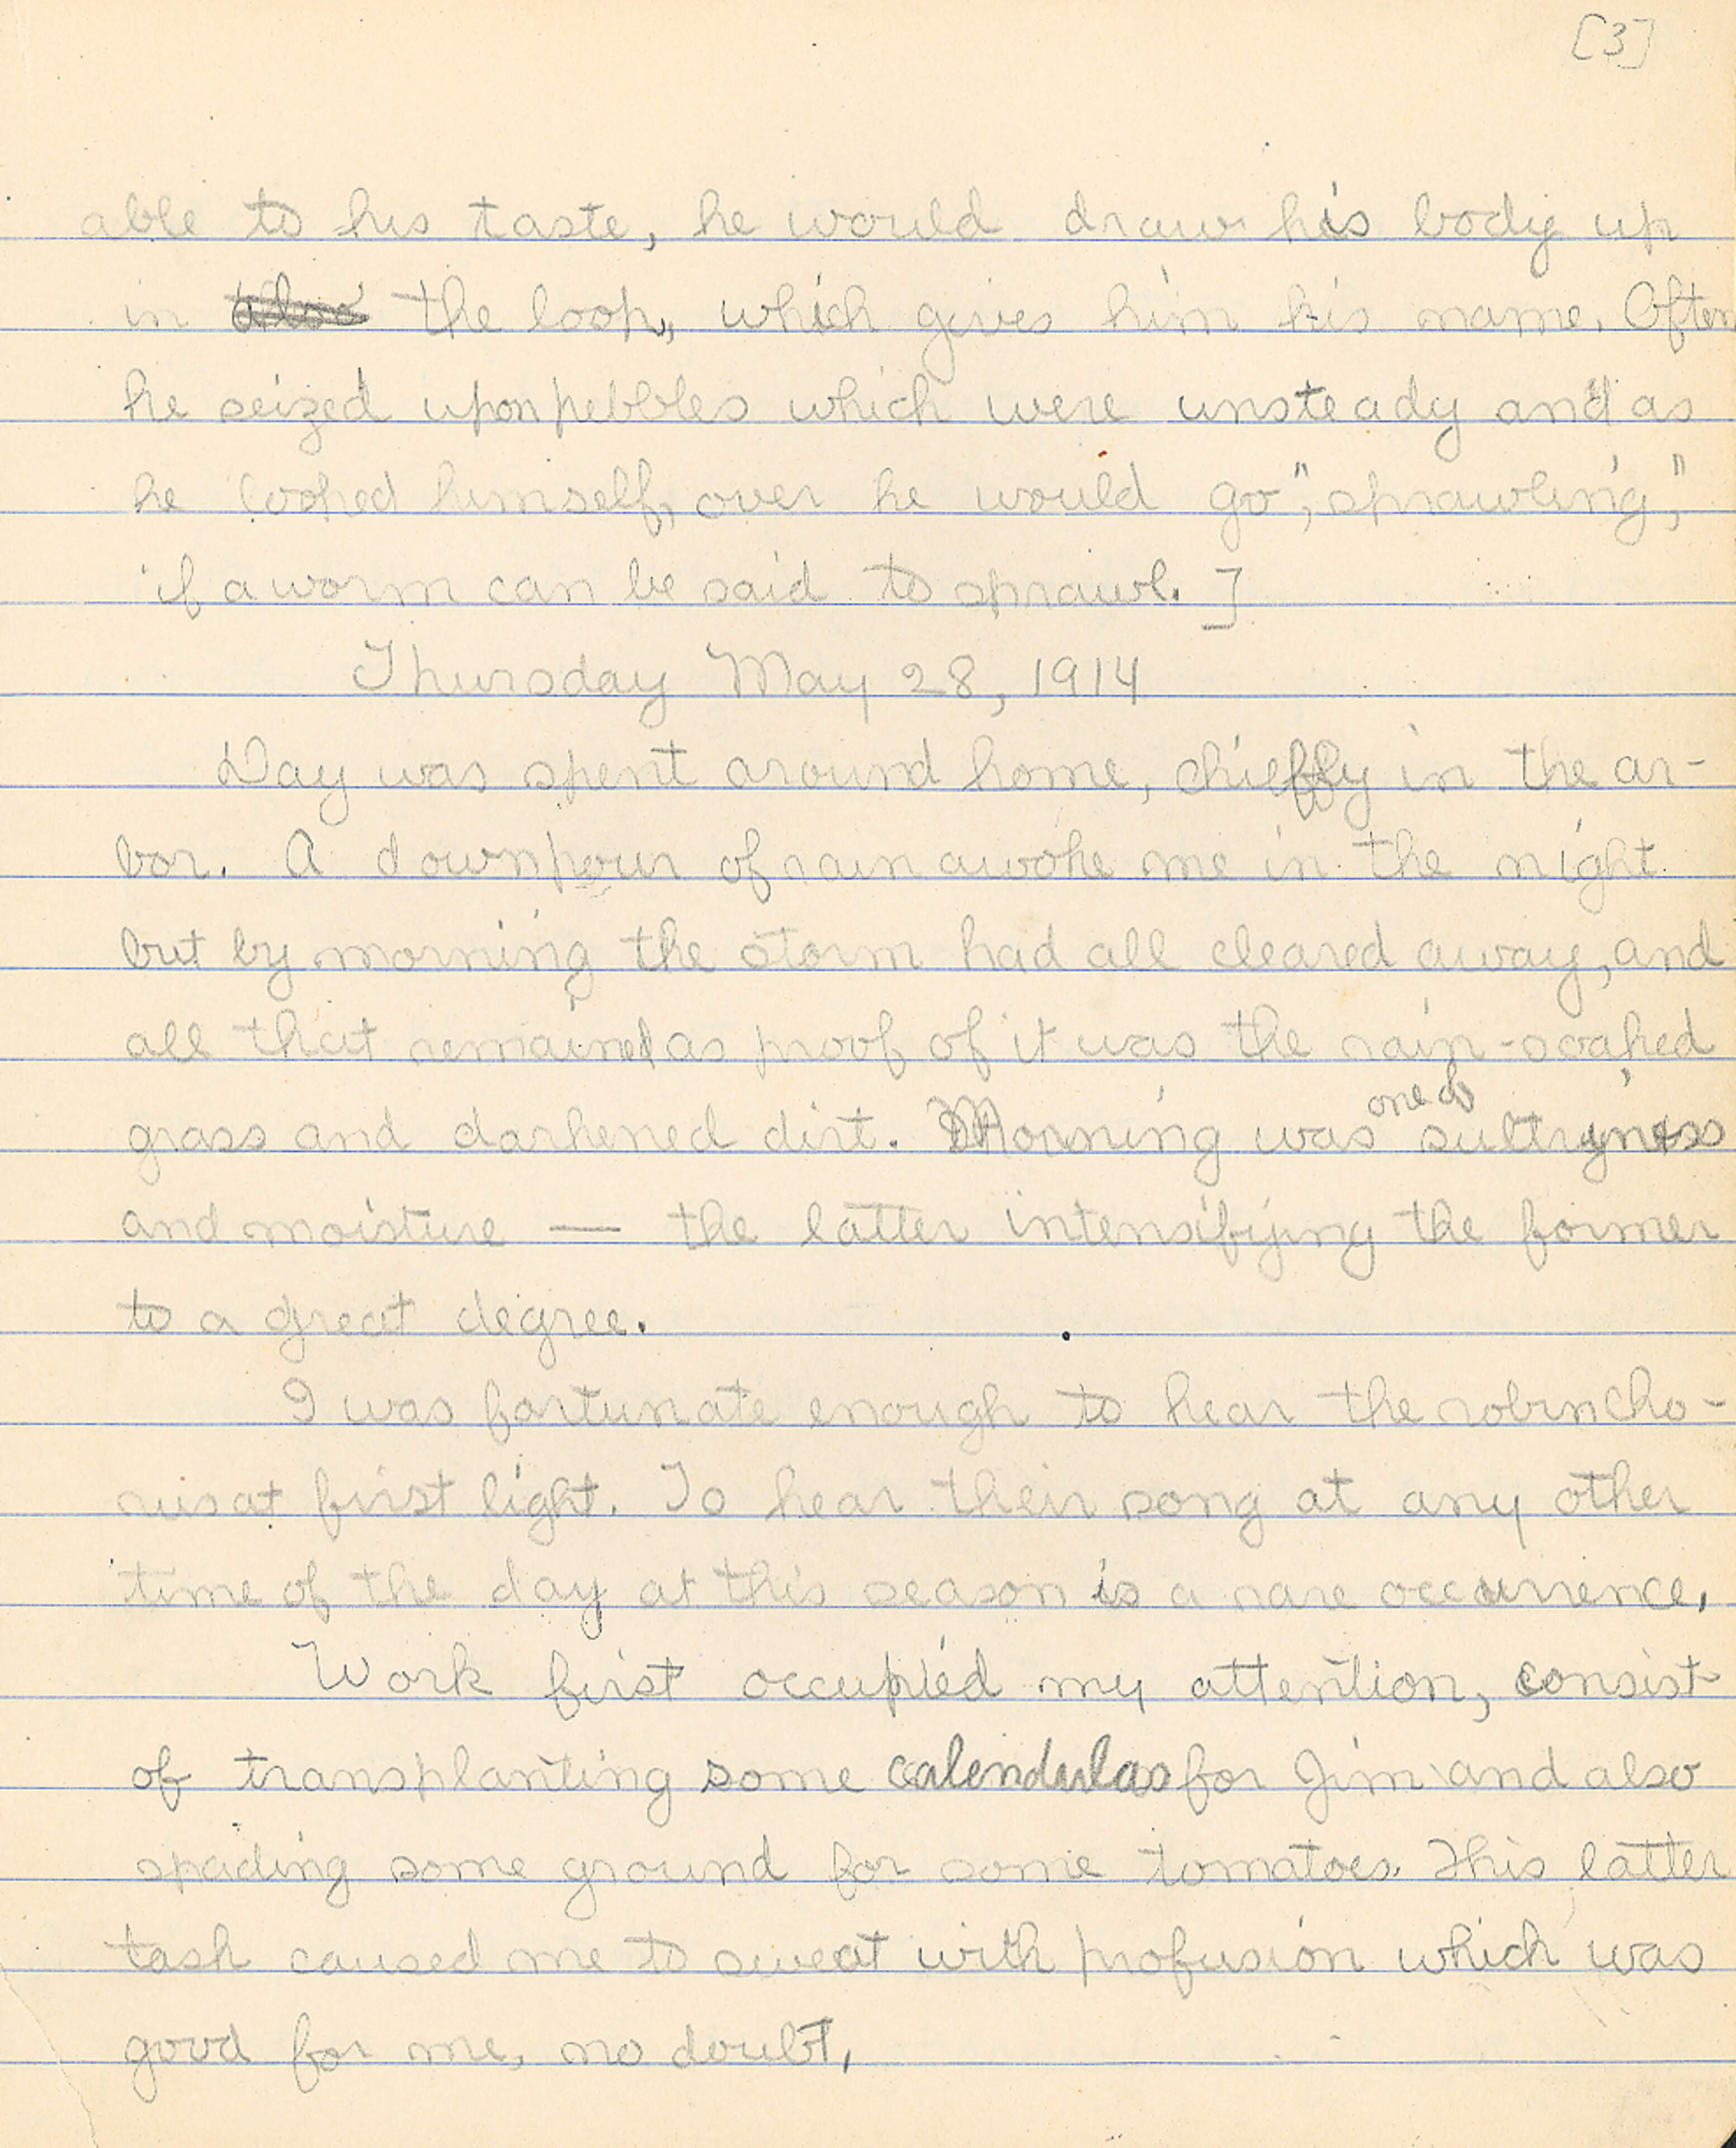 [3]
able to his taste, he would draw his body up
in the loop, which gives him his name. Often
he seized upon pebbles which were unsteady and as
he looped himself, over he would go, "sprawling,"
if a worm can be said to sprawl. ]
Thursday May 28, 1914
Day was spent around home, chiefly in the ar-
bor. A downpour of rain awoke me in the night
but by morning the storm had all cleared away, and
all that remained as proof of it was the rain-soaked
grass and darkened dirt. Morning was one of sultryness
and moisture — the latter intensifying the former
to a great degree.
I was fortunate enough to hear the robin cho-
rus at first light. To hear their song at any other
time of the day at this season is a rare occurrence.
Work first occupied my attention, consist
of transplanting some calendulas for Jim and also
spading some ground for some tomatoes. This latter
task caused me to sweat with profusion which was
good for me, no doubt.